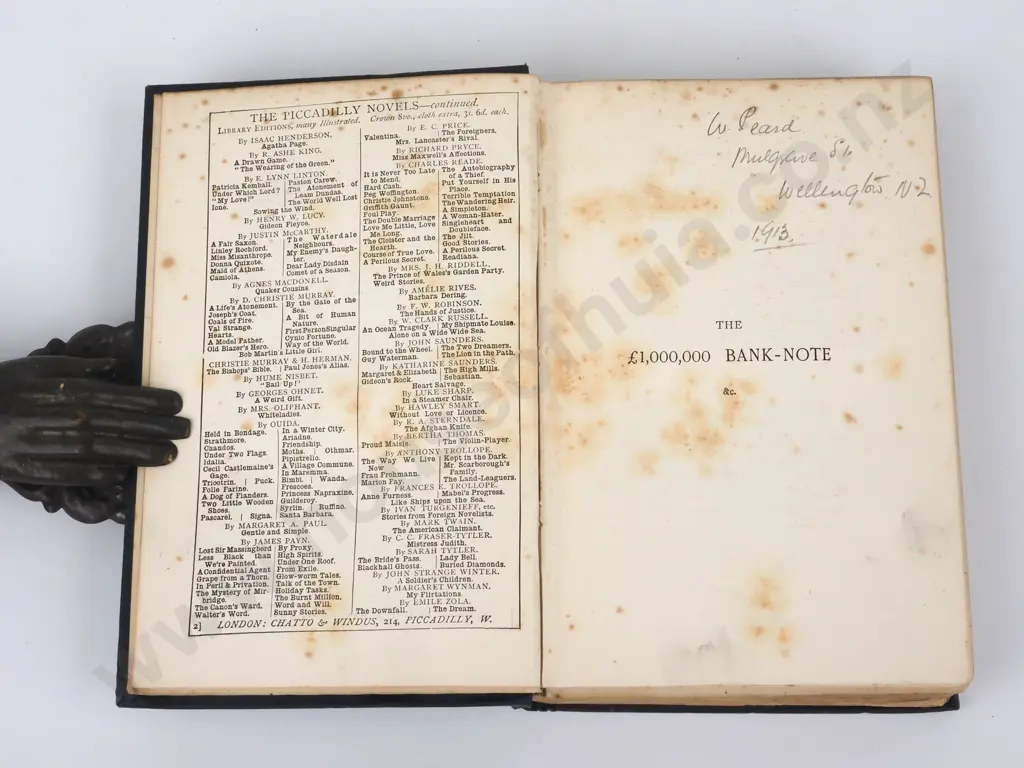 THE PICCADILLY NOVELS—continued.
LIBRARY EDITIONS, many Illustrated. Crown 8vo., cloth extra, 3s. 6d. each.
By ISAAC HENDERSON.
Agatha Page.
By R. ASHE KING.
A Drawn Game.
"The Wearing of the Green."
By E. LYNN LINTON.
Patricia Kemball.
Under Which Lord?
"My Love!"
Ione.
Paston Carew.
The Atonement of
Leam Dundas.
The World Well Lost
Sowing the Wind.
By HENRY W. LUCY.
Gideon Fleyce.
By JUSTIN McCARTHY.
A Fair Saxon.
Linley Rochford.
Miss Misanthrope.
Donna Quixote.
Maid of Athens.
Camiola.
The Waterdale
Neighbours.
My Enemy's Daugh-
ter.
Dear Lady Disdain
Comet of a Season.
By AGNES MACDONELL.
Quaker Cousins.
By D. CHRISTIE MURRAY.
A Life's Atonement.
Joseph's Coat.
Coals of Fire.
Val Strange.
Hearts.
A Model Father.
Old Blazer's Hero.
By the Gate of the
Sea.
A Bit of Human
Nature.
First Person Singular
Cynic Fortune.
Way of the World.
Bob Martin's Little Girl.
CHRISTIE MURRAY & H. HERMAN.
The Bishops' Bible.
Paul Jones's Alias.
By HUME NISBET.
"Bail Up!"
By GEORGES OHNET.
A Weird Gift.
By MRS. OLIPHANT.
Whiteladies.
By OUIDA.
Held in Bondage.
Strathmore.
Chandos.
Under Two Flags.
Idalia.
Cecil Castlemaine's
Gage.
Tricotrin. | Puck.
Folle Farine.
A Dog of Flanders.
Two Little Wooden
Shoes.
Pascarel. | Signa.
In a Winter City.
Ariadne.
Friendship.
Moths. | Othmar.
Pipistrello.
A Village Commune.
In Maremma.
Bimbi. | Wanda.
Frescoes.
Princess Napraxine.
Guilderoy.
Syrlin. | Ruffino.
Santa Barbara.
By MARGARET A. PAUL.
Gentle and Simple.
By JAMES PAYN.
Lost Sir Massingberd
Less Black than
We're Painted.
A Confidential Agent
Grape from a Thorn.
In Peril & Privation.
The Mystery of Mir-
bridge.
The Canon's Ward.
Walter's Word.
By Proxy.
High Spirits.
Under One Roof.
From Exile.
Glow-worm Tales.
Talk of the Town.
Holiday Tasks.
The Burnt Million.
Word and Will.
Sunny Stories.
By E. C. PRICE.
Valentina.
The Foreigners.
Mrs. Lancaster's Rival.
By RICHARD PRYCE.
Miss Maxwell's Affections.
By CHARLES READE.
It is Never Too Late
to Mend.
Hard Cash.
Peg Woffington.
Christie Johnstone.
Griffith Gaunt.
Foul Play.
The Double Marriage
Love Me Little, Love
Me Long.
The Cloister and the
Hearth.
Course of True Love.
A Perilous Secret.
The Autobiography
of a Thief.
Put Yourself in His
Place.
Terrible Temptation
The Wandering Heir.
A Simpleton.
A Woman-Hater.
Singleheart and
Doubleface.
The Jilt.
Good Stories.
A Perilous Secret.
Readiana.
By MRS. J. H. RIDDELL.
The Prince of Wales's Garden Party.
Weird Stories.
By AMÉLIE RIVES.
Barbara Dering.
By F. W. ROBINSON.
The Hands of Justice.
By W. CLARK RUSSELL.
An Ocean Tragedy.
My Shipmate Louise.
Alone on a Wide Wide Sea.
By JOHN SAUNDERS.
Bound to the Wheel.
Guy Waterman.
The Two Dreamers.
The Lion in the Path.
By KATHARINE SAUNDERS.
Margaret & Elizabeth
Gideon's Rock.
The High Mills.
Sebastian.
Heart Salvage.
By LUKE SHARP.
In a Steamer Chair.
By HAWLEY SMART.
Without Love or Licence.
By R. A. STERNDALE.
The Afghan Knife.
By BERTHA THOMAS.
Proud Maisie.
The Violin-Player.
By ANTHONY TROLLOPE.
The Way We Live
Now
Frau Frohmann.
Marion Fay.
Kept in the Dark.
Mr. Scarborough's
Family.
The Land-Leaguers.
By FRANCES E. TROLLOPE.
Anne Furness.
Mabel's Progress.
Like Ships upon the Sea.
By IVAN TURGENIEFF, etc.
Stories from Foreign Novelists.
By MARK TWAIN.
The American Claimant.
By C. C. FRASER-TYTLER.
Mistress Judith.
By SARAH TYTLER.
The Bride's Pass.
Blackhall Ghosts.
Lady Bell.
Buried Diamonds.
By JOHN STRANGE WINTER.
A Soldier's Children.
By MARGARET WYNMAN.
My Flirtations.
By EMILE ZOLA.
The Downfall.
The Dream.
2] LONDON: CHATTO & WINDUS, 214, PICCADILLY, W.
W. Peard
Mulgrave St.
Wellington N Z
1913.
THE
£1,000,000 BANK-NOTE
&c.